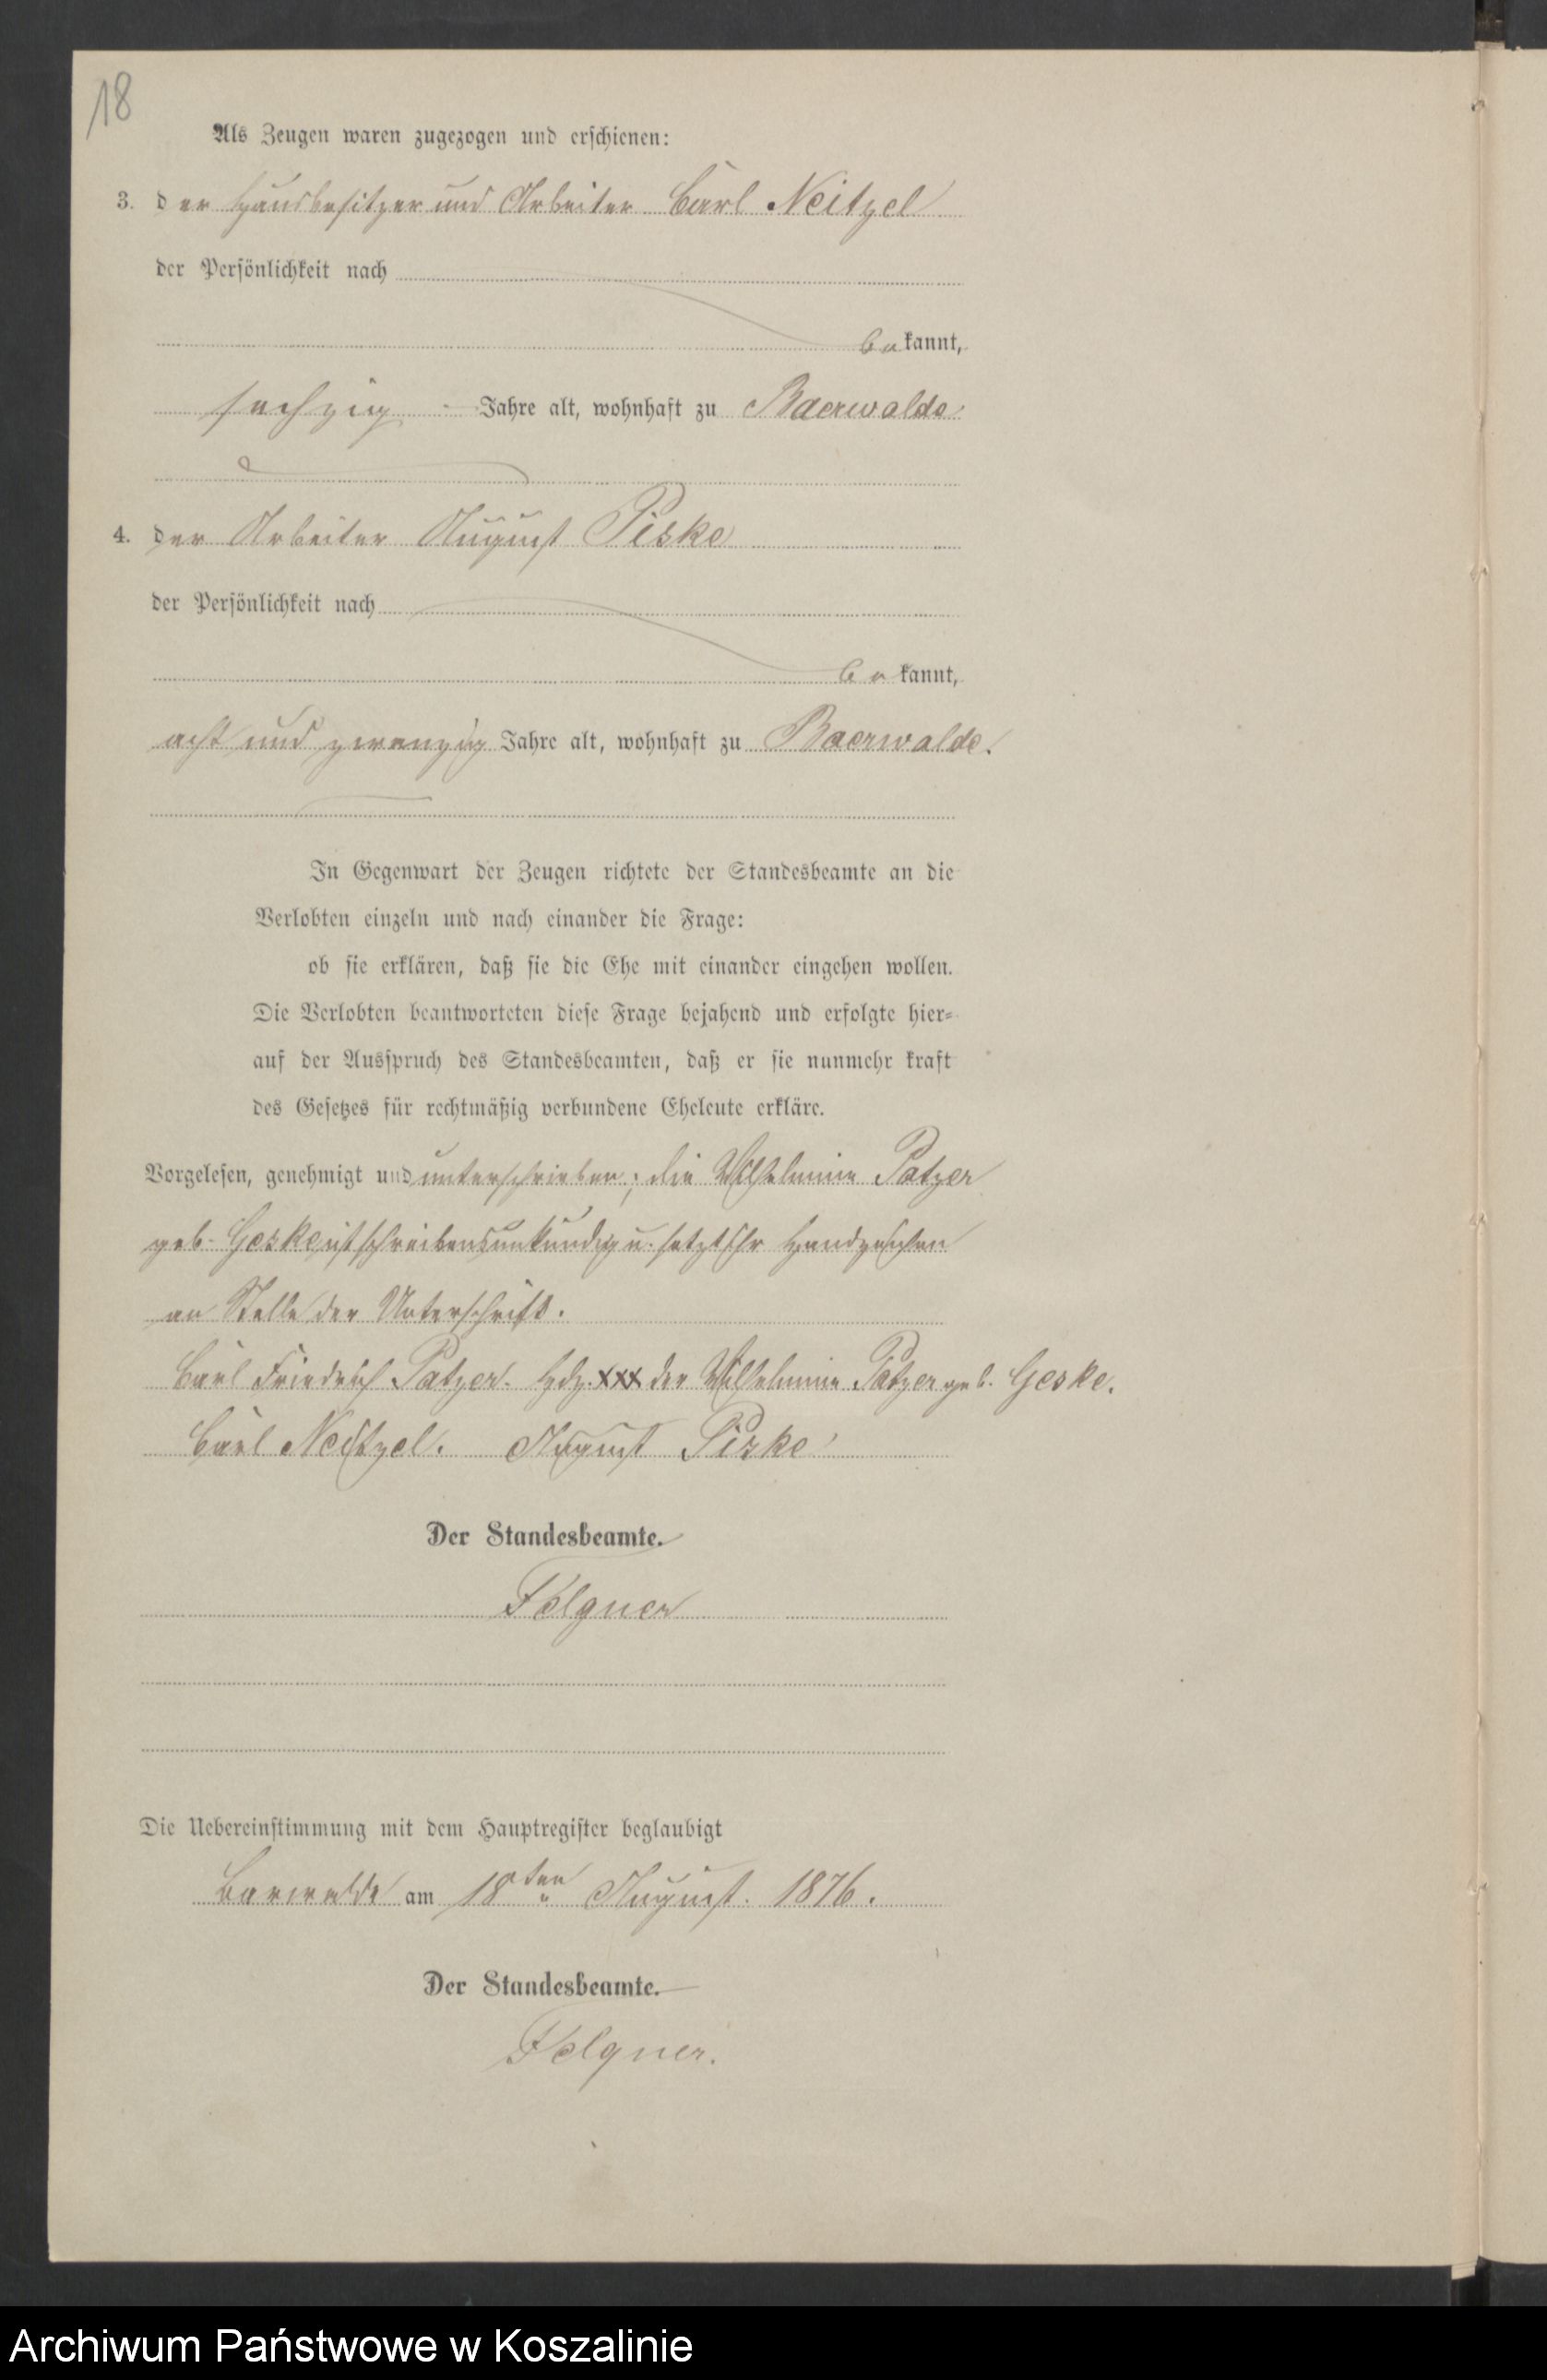 18
Als Zeugen waren zugezogen und erschienen:
3. der Hausbesitzer und Arbeiter Carl Neitzel
der Persönlichkeit nach
bekannt,
sechzig Jahre alt, wohnhaft zu Baerwalde
4. der Arbeiter August Piske
der Persönlichkeit nach
bekannt,
acht und zwanzig Jahre alt, wohnhaft zu Baerwalde.
In Gegenwart der Zeugen richtete der Standesbeamte an die
Verlobten einzeln und nach einander die Frage:
ob sie erklären, daß sie die Ehe mit einander eingehen wollen.
Die Verlobten beantworteten diese Frage bejahend und erfolgte hier-
auf der Ausspruch des Standesbeamten, daß er sie nunmehr kraft
des Gesetzes für rechtmäßig verbundene Eheleute erkläre.
Vorgelesen, genehmigt und unterschrieben; die Wilhelmine Patzer
geb. Geske ist schreibensunkundig u. setzt ihr Handzeichen
an Stelle der Unterschrift.
Carl Friedrich Patzer. Hdz. xxx der Wilhelmine Patzer geb. Geske.
Carl Neitzel. August Piske
Der Standesbeamte.
Felgner
Die Uebereinstimmung mit dem Hauptregister beglaubigt
Baerwalde am 18ten August. 1876.
Der Standesbeamte.
Felgner.
Archiwum Państwowe w Koszalinie